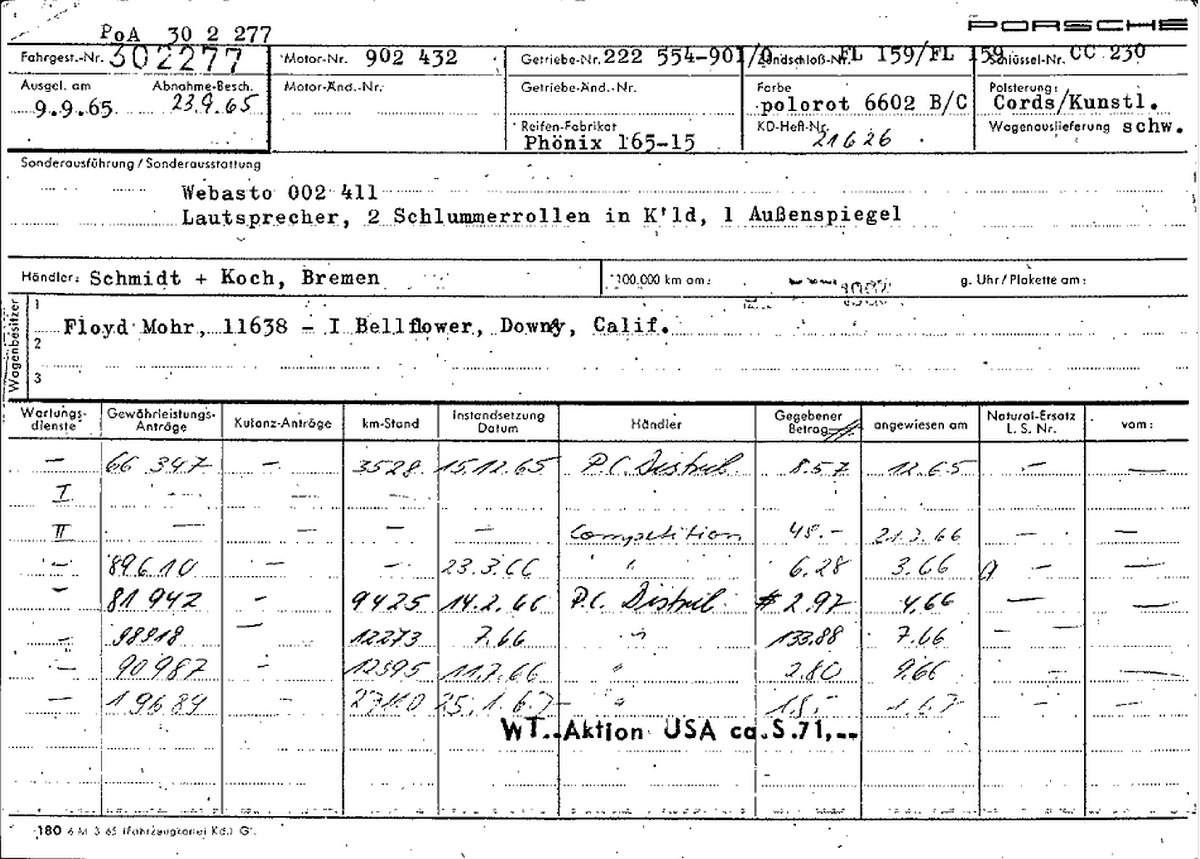 PORSCHE
PoA 30 2 277
Fahrgest.-Nr. 302277
Motor-Nr. 902 432
Getriebe-Nr. 222 554-901/0
Zündschloß-Nr. FL 159/FL 159
Schlüssel-Nr. CC 230
Ausgel. am 9.9.65
Abnahme-Besch. 23.9.65
Motor-Änd.-Nr.
Getriebe-Änd.-Nr.
Farbe polorot 6602 B/C
Polsterung: Cords/Kunstl.
Reifen-Fabrikat Phönix 165-15
KD-Heft-Nr. 21626
Wagenauslieferung schw.
Sonderausführung / Sonderausstattung
Webasto 002 411
Lautsprecher, 2 Schlummerrollen in K'ld, 1 Außenspiegel
Händler: Schmidt + Koch, Bremen
100.000 km am:
g. Uhr/Plakette am:
Wagenbesitzer
1
Floyd Mohr, 11638 - I Bellflower, Downy, Calif.
2
3
Wartungs-dienste Gewährleistungs-Anträge Kulanz-Anträge km-Stand Instandsetzung Datum Händler Gegebener Betrag angewiesen am Natural-Ersatz L. S. Nr. vom:
— 66 347 — 3528 15.12.65 P.C. Distrib. 8.57 12.65 — —
I — — —
II — — — — Competition 48.- 21.3.66 — —
— 89610 — — 23.3.66 " 6.28 3.66 — —
— 81 942 — 9425 14.2.66 P.C. Distrib. $ 2.97 4.66 — —
— 98918 — 12273 7.66 " 133.88 7.66 — —
— 90987 — 12595 11.7.66 " 2.80 9.66 — —
— 19689 — 27110 25.1.67 " 18.- 1.67 — —
WT.-Aktion USA ca.S.71,--
180 6 M 3 65 (Fahrzeugkartei Kd.) G.